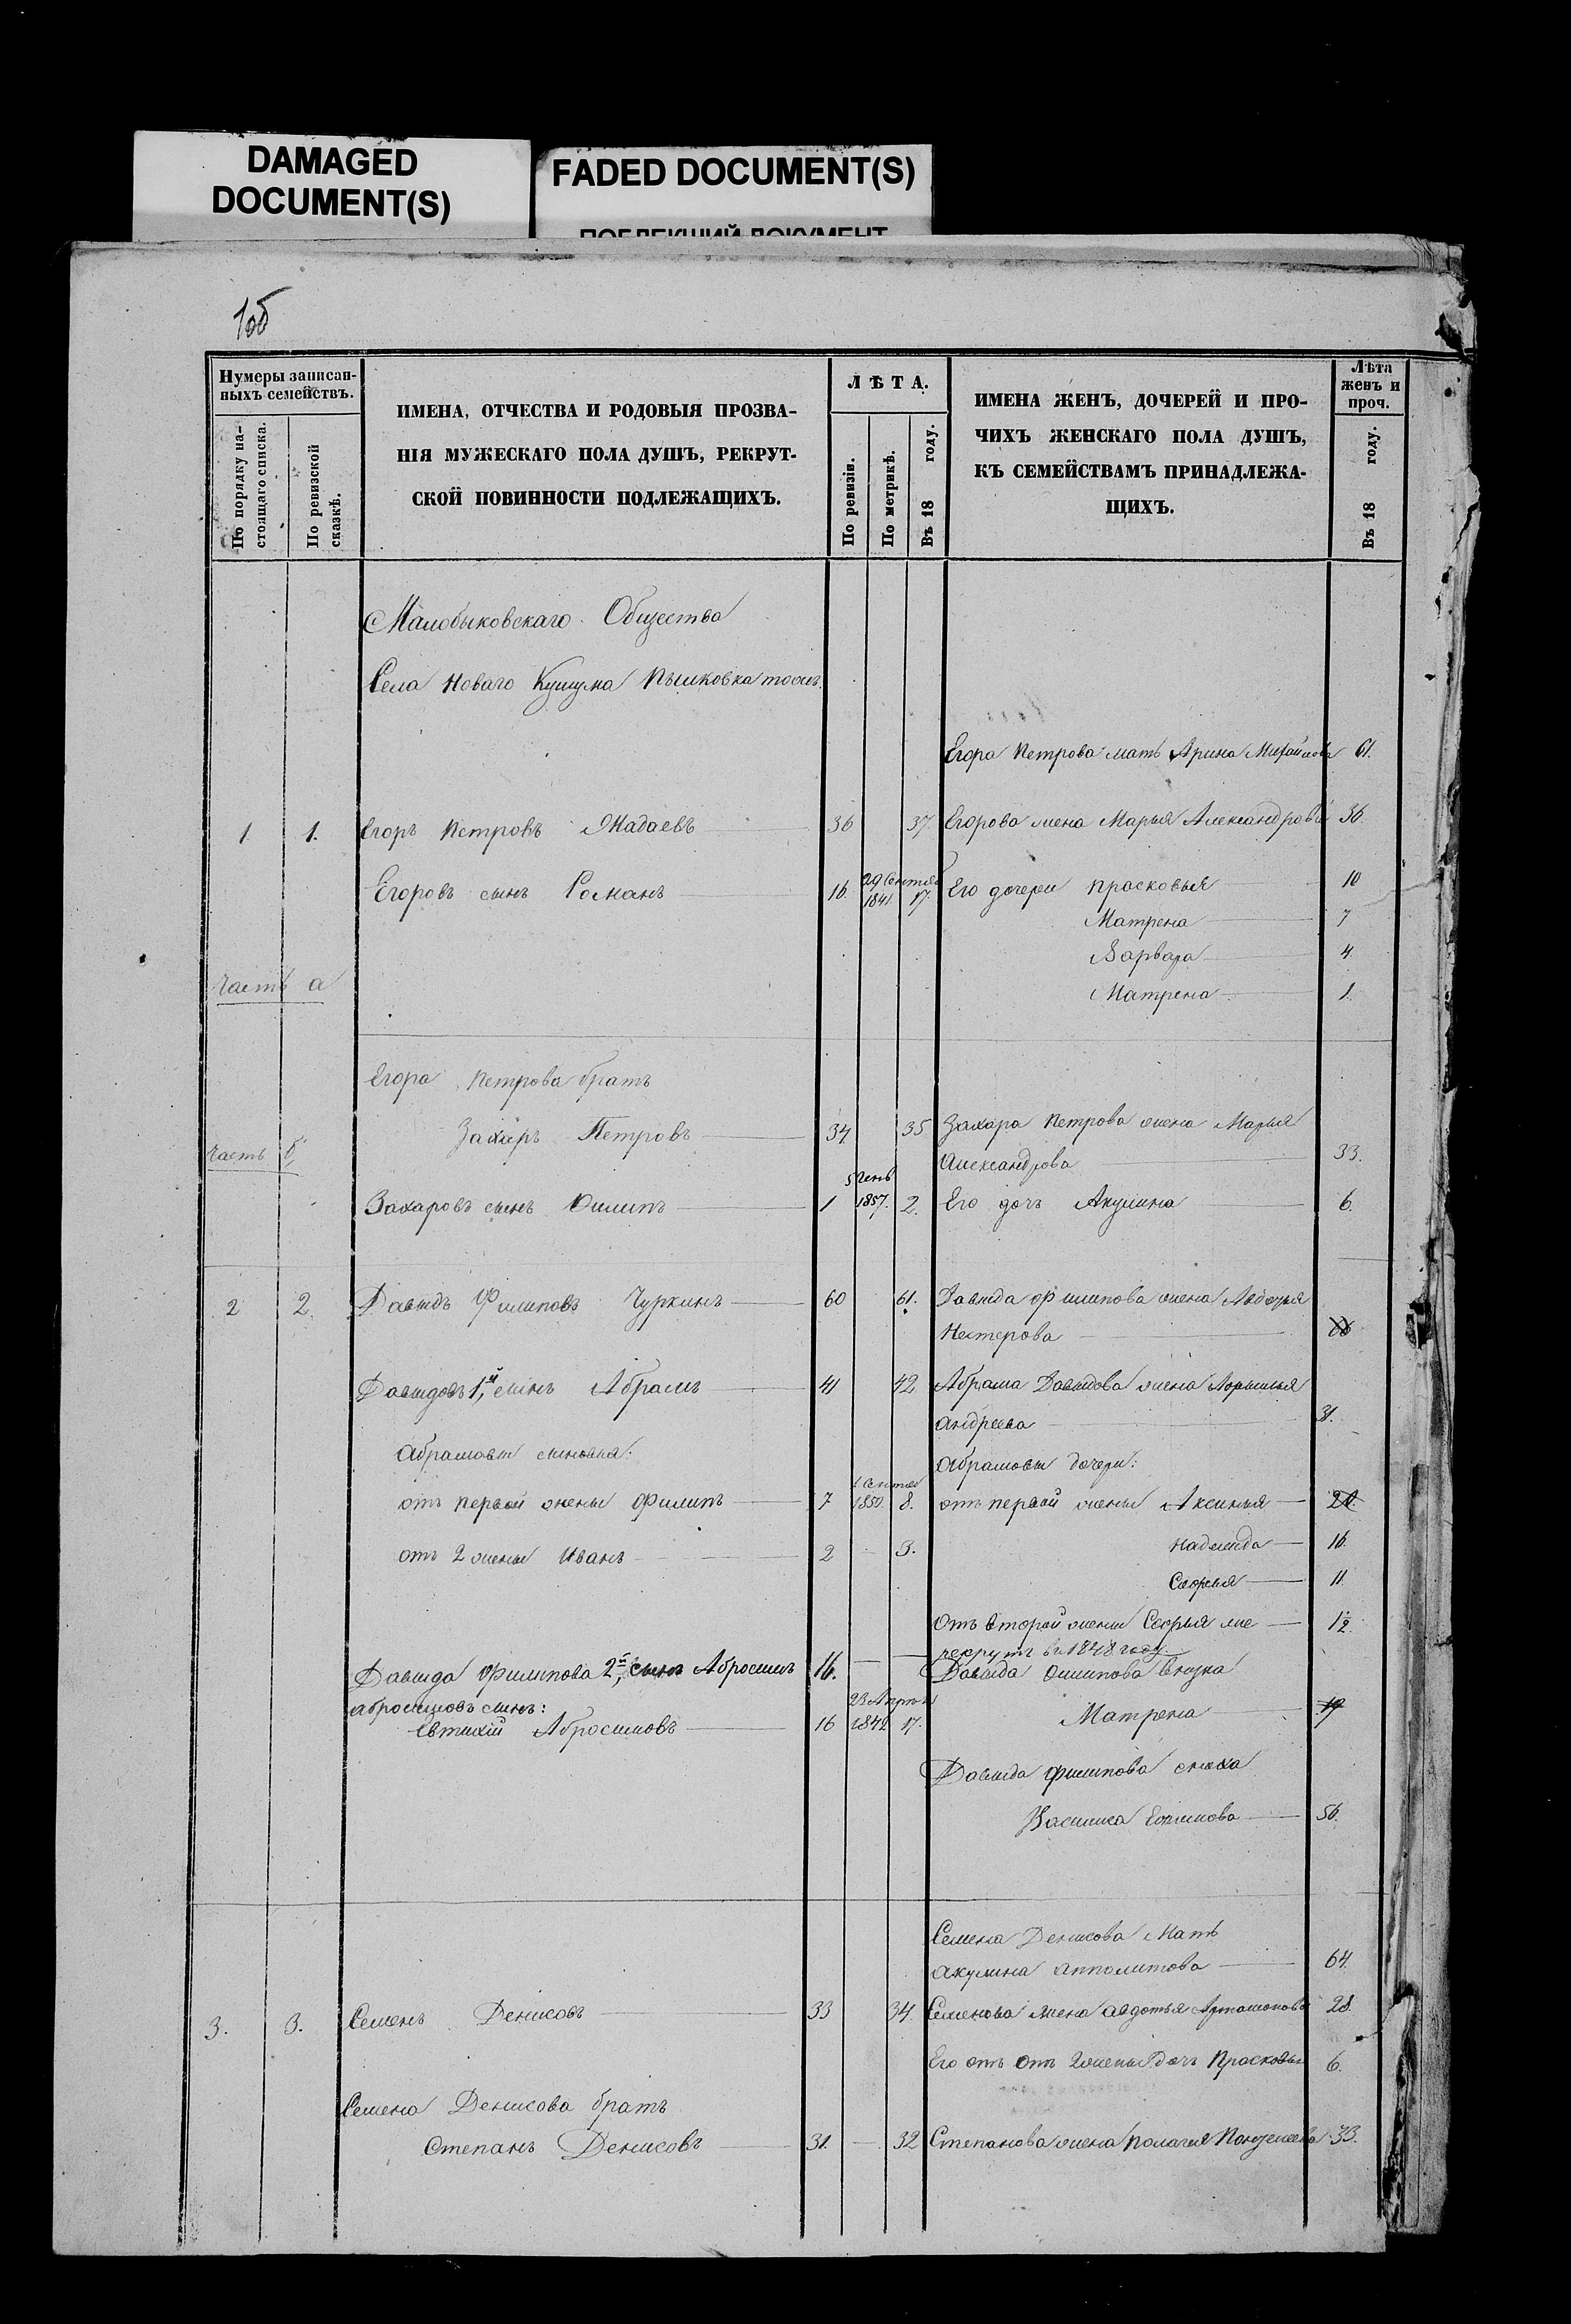 DAMAGED
DOCUMENT(S)
FADED DOCUMENT(S)
ПОБЛЕКШИЙ ДОКУМЕНТ
Нумеры записан-
ныхъ семействъ.
По порядку на-
стоящаго списка.
По ревизской
сказкѣ.
ИМЕНА, ОТЧЕСТВА И РОДОВЫЯ ПРОЗВА-
НІЯ МУЖЕСКАГО ПОЛА ДУШЪ, РЕКРУТ-
СКОЙ ПОВИННОСТИ ПОДЛЕЖАЩИХЪ.
ЛѢТА.
По ревизіи.
По метрикѣ.
Въ 18 году.
ИМЕНА ЖЕНЪ, ДОЧЕРЕЙ И ПРО-
ЧИХЪ ЖЕНСКАГО ПОЛА ДУШЪ,
КЪ СЕМЕЙСТВАМЪ ПРИНАДЛЕЖА-
ЩИХЪ.
Лѣта
женъ и
проч.
Въ 18 году.
Малобыковскаго Общества
Села Новаго Кушума Пѣшковка тожъ.
Егора Петрова мать Арина Михайлова 61.
1. 1. Егоръ Петровъ Жадаевъ 36 37. Егорова жена Марья Александрова 36.
Егоровъ сынъ Романъ 16. 29 Сентяб 1841. 17. Его дочери Прасковья 10
Матрена 7
Варвара 4.
Матрена 1.
Часть а
Егора Петрова братъ
Захаръ Петровъ 34 35 Захара Петрова жена Марья
Часть б,
Александрова 33.
Захаровъ сынъ Филипъ 1 1857. 2. Его дочь Акулина 6.
2 2. Давыдъ Филиповъ Чуркинъ 60 61. Давыда Филипова жена Авдотья
Нестерова
Давыдовъ 1й, сынъ Абрамъ 41 42 Абрама Давыдова жена
Андреева 31.
Абрамовы сыновья:
Абрамовы дочери:
отъ первой жены Филипъ 7 1850. 8. отъ первой жены Аксинья
отъ 2 жены Иванъ 2 3. Надежда 16.
Софья 11.
Отъ второй жены Софья 1½
рекрутъ въ 1848 году
Давыда Филипова 2й, сынъ Абросимъ 16. Давыда Филипова внучка
Абросимовъ сынъ:
Евтихій Абросимовъ 16 23 Апрѣл 1842 17. Матрена 19
Давыда Филипова сноха
Василиса Ефимова 56.
Семена Денисова Мать
Акулина Апполитова 64.
3. 3. Семенъ Денисовъ 33 34. Семенова жена Авдотья Артамонова 28.
Его отъ отъ 2 жены дочь Прасковья 6.
Семена Денисова братъ
Степанъ Денисовъ 31. 32 Степанова жена Палагея 33.